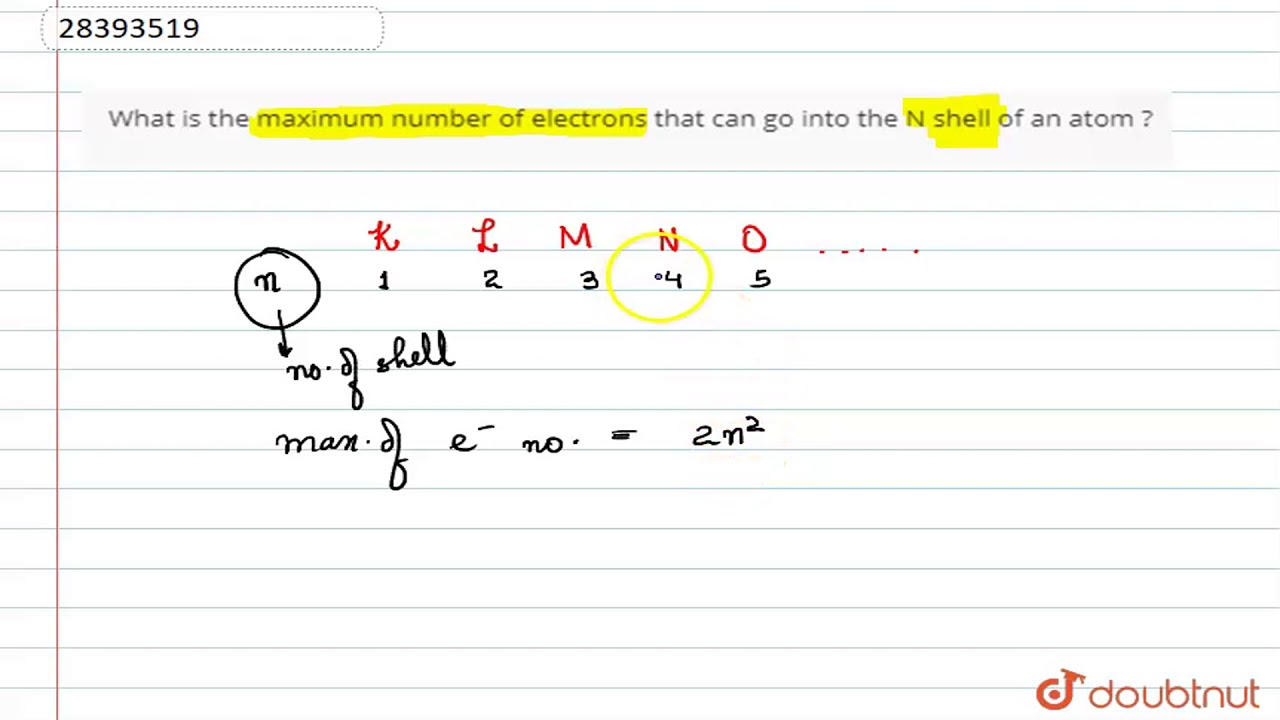 28393519
What is the maximum number of electrons that can go into the N shell of an atom ?
K L M N O .....
n 1 2 3 4 5
no. of shell
max. of e⁻ no. = 2n²
doubtnut